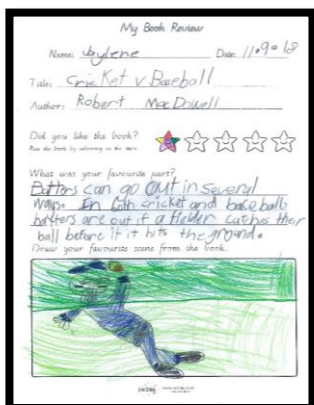 My Book Review
Name: Jaylene Date: 11.9.18
Title: Cricket v Baseball
Author: Robert MacDowell
Did you like the book?
Rate the book by colouring in the stars.
What was your favourite part?
Battors can go out in several
ways. In both cricket and baseball
batters are out if a fielder catches ther
ball before if it hits the ground.
Draw your favourite scene from the book.